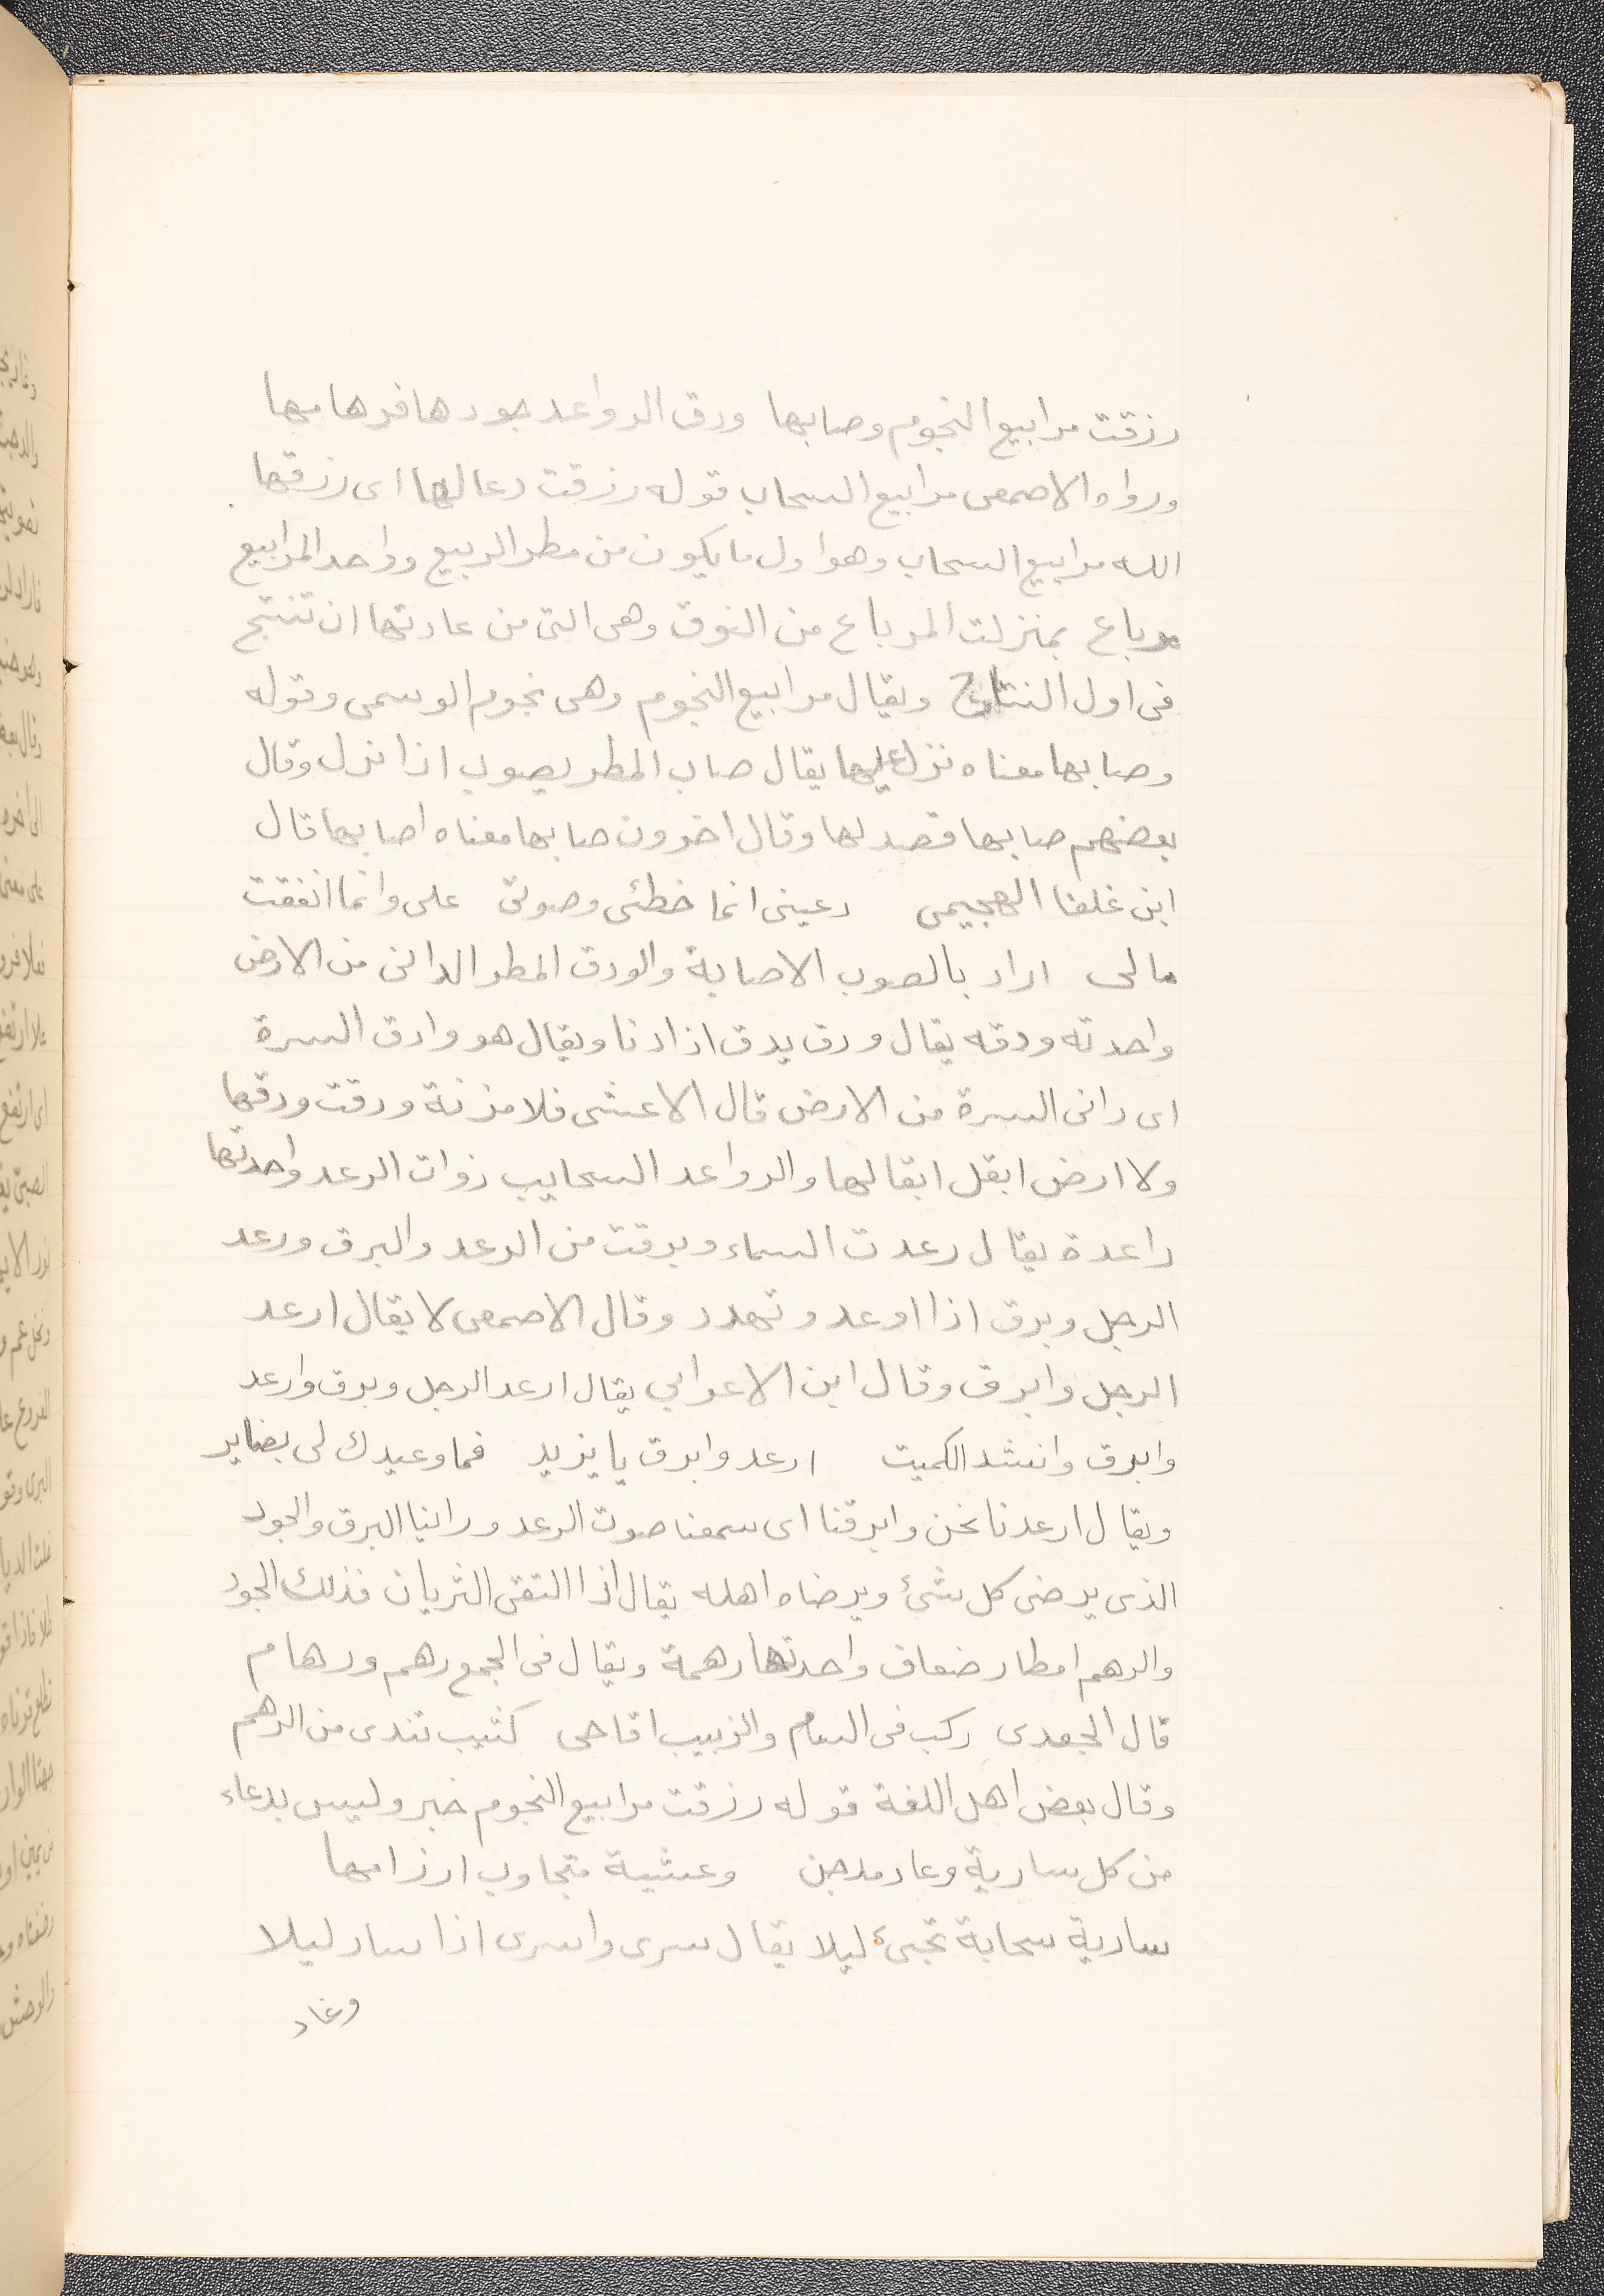 رزقت مرابيع النجوم وصابها ودق الرواعد جودها فرهامها
ورواه الاصمعى مرابيع السحاب قوله رزقت دعا لها اى رزقها
الله مرابيع السحاب وهو اول ما يكون من مطر الربيع وواحد المرابيع
مرباع بمنزلت المرباع من النوق وهى التى من عادتها ان تنتج
فى اول النتاج ويقال مرابيع النجوم وهى نجوم الوسمى وقوله
وصابها معناه نزل عليها يقال صاب المطر يصوب اذا نزل وقال
بعضهم صابها قصد لها وقال اخرون صابها معناه اصابها قال
ابن غلفا الهجيمى دعينى انما خطئى وصوتى على وانما انفقت
مالى اراد بالصوب الاصابة والودق المطر الدانى من الارض
واحدته ودقه يقال ودق يدق اذا دنا ويقال هو وادق السرة
اى دانى السرة من الارض قال الاعشى فلا مزنة ودقت ودقها
ولا ارض ابقل ابقالها والرواعد السحايب ذوات الرعد واحدتها
راعدة يقال رعدت السماء وبرقت من الرعد والبرق ورعد
الرجل وبرق اذا اوعد وتهدد وقال الاصمعى لا يقال ارعد
الرجل وابرق وقال ابن الاعرابي يقال ارعد الرجل وبرق وارعد
وابرق وانشد الكميت ارعد وابرق يا يزيد فما وعيدك لى بضاير
ويقال ارعدنا نحن وابرقنا اى سمعنا صوت الرعد وراينا البرق والجود
الذى يرضى كل شئ ويرضاه اهله يقال اذا التقى الثريان فذلك الجود
والرهم امطار ضعاف واحدتها رهمة ويقال فى الجمع رهم ورهام
قال الجعدى ركب فى السام والزبيب اقاحى كثيب تندى من الرهم
وقال بعض اهل اللغة قوله رزقت مرابيع النجوم خبر وليس بدعاء
من كل سارية وغاد مدجن وعشية متجاوب ارزامها
سارية سحابة تجىء ليلا يقال سرى واسرى اذا سار ليلا
وغاد